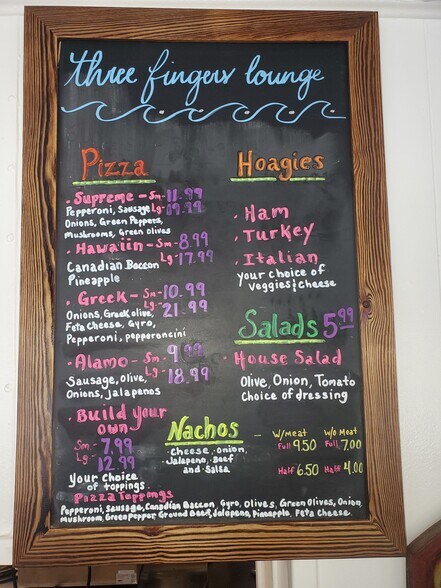 three fingers lounge
Pizza
• Supreme - Sm - 11.99
Pepperoni, Sausage Lg - 19.99
Onions, Green Peppers,
Mushrooms, Green olives
• Hawaiin - Sm - 8.99
Lg - 17.99
Canadian Baccon
Pineapple
• Greek - Sm - 10.99
Onions, Greek olive, Lg - 21.99
Feta Cheese, Gyro,
Pepperoni, pepperoncini
• Alamo - Sm - 9.99
Sausage, Olive, Lg - 18.99
Onions, Jalapenos
• Build Your
own
Sm - 7.99
Lg - 12.99
Your choice
of toppings
Hoagies
• Ham
• Turkey
• Italian
your choice of
veggies & cheese
Salads 5.99
• House Salad
Olive, Onion, Tomato
Choice of dressing
Nachos -
Cheese, Onion,
Jalapeno, Beef
and Salsa
W/Meat W/o Meat
Full 9.50 Full 7.00
Half 6.50 Half 4.00
Pizza Toppings
Pepperoni, Sausage, Canadian Baccon, Gyro, Olives, Green Olives, Onion
Mushroom, Green Pepper, Ground Beef, Jalapeno, Pineapple, Feta Cheese